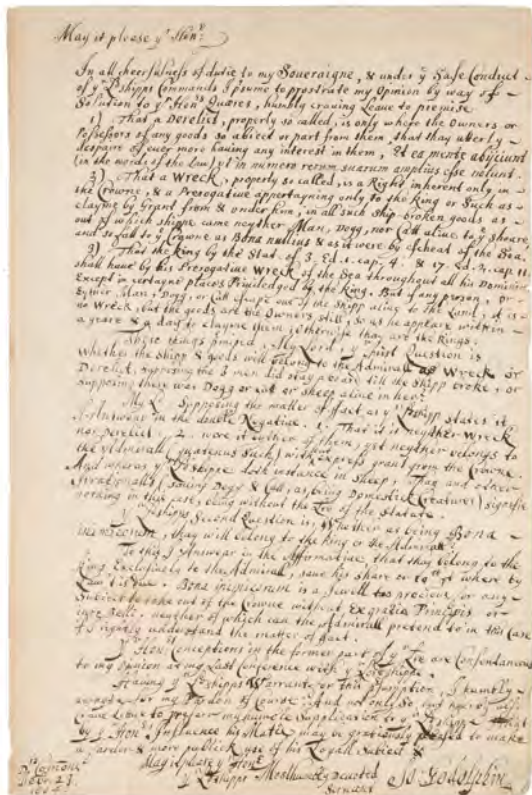 May it please yr Honr
In all cheerfulness of dutie to my Soueraigne, & under ye Safe Conduct
of yr Ldshipps Commands I p'sume to prostrate my Opinion by way of
Solution to yr Honrs Quæres, humbly craving Leave to premise
1) That a Derelict, properly so called, is only where the Owners, or
Possessors of any goods so abiect or part from them, that they utterly
despaire of ever more having any interest in them, Et ea mente abijciunt
(in the words of the Law) ut in numero rerum suarum amplius esse nolunt.
2) That a Wreck, properly so called, is a Right inherent only in
the Crowne, & a Prerogative appertayning only to the King or Such as
clayme by Grant from & under him, in all such Ship-broken goods as
out of which shippe came neyther Man, Dogg, nor Catt alive to ye Shoare
and so fall to ye Crowne as Bona nullius & as it were by escheat of the Sea.
3) That the King by the Stat. of 3. Ed. 1. cap. 4. & 17. Ed. 2. cap. 11.
shall have by his Prerogative Wreck of the Sea throughout all his Dominions
Except in certayne places Priviledged by the King. But if any person, or
eyther Man, Dogg, or Catt escape out of the Shipp alive to the Land, it is
no Wreck, but the goods are the Owners still, so as he appeare within
a yeare & a day to clayme them; otherwise they are the Kings.
These things p'mised, My Lord, ye first Question is
Whether the Shipp & goods will belong to the Admirall as Wreck or
Derelict, supposing the 3 men did stay aboard till the Shipp broke, or
Supposing there was Dogg or Cat or sheep alive in her?
My Ld. Supposing the matter of fact as yr Ldshipp states it
I Answear in the double Negative. 1. That it is neyther Wreck
nor Derelict, 2. were it eyther of them, yet neyther belongs to
the Admirall (quatenus Such) without express grant from the Crowne.
And wheras yr Ldshippe doth instance in Sheep, They and other
Irrationalls (saving Dogg & Catt, as being Domestick Creatures) signifie
nothing in this case, being without the of the Statute.
yr Ldshipps Second Question is, Whether as being Bona
they will belong to the King or the Admirall?
To this I Answear in the Affirmative that they belong to the
King, Exclusively to the Admirall, save his share or where by
Law it is due. Bona is a Jewell too precious for any
Subiect to take out of the Crowne without Ex gratia Principis or
Iure Belli. neyther of which can the Admirall pretend to in this Case
if I rightly understand the matter of fact.
yr Honrs Conceptions in the former part of yr Lre are Consonant
to my Opinion at my Last Conference with yr Lordshippe.
Having yr Ldshipps Warrant for this p'sumption, I humbly
for my Pardon of Course. And not only So, but
crave Leave to preferr my humble Supplication to yr Ldshipp that
by yr Honrs Influence his Matie may be graciously pleased to make
a farder & more publick use of his Loyall Subiect &
May it please yr Honr
yr Ldshipps Most humbly Devoted
Servant
Jo: Godolphin
Drs Comons
23.